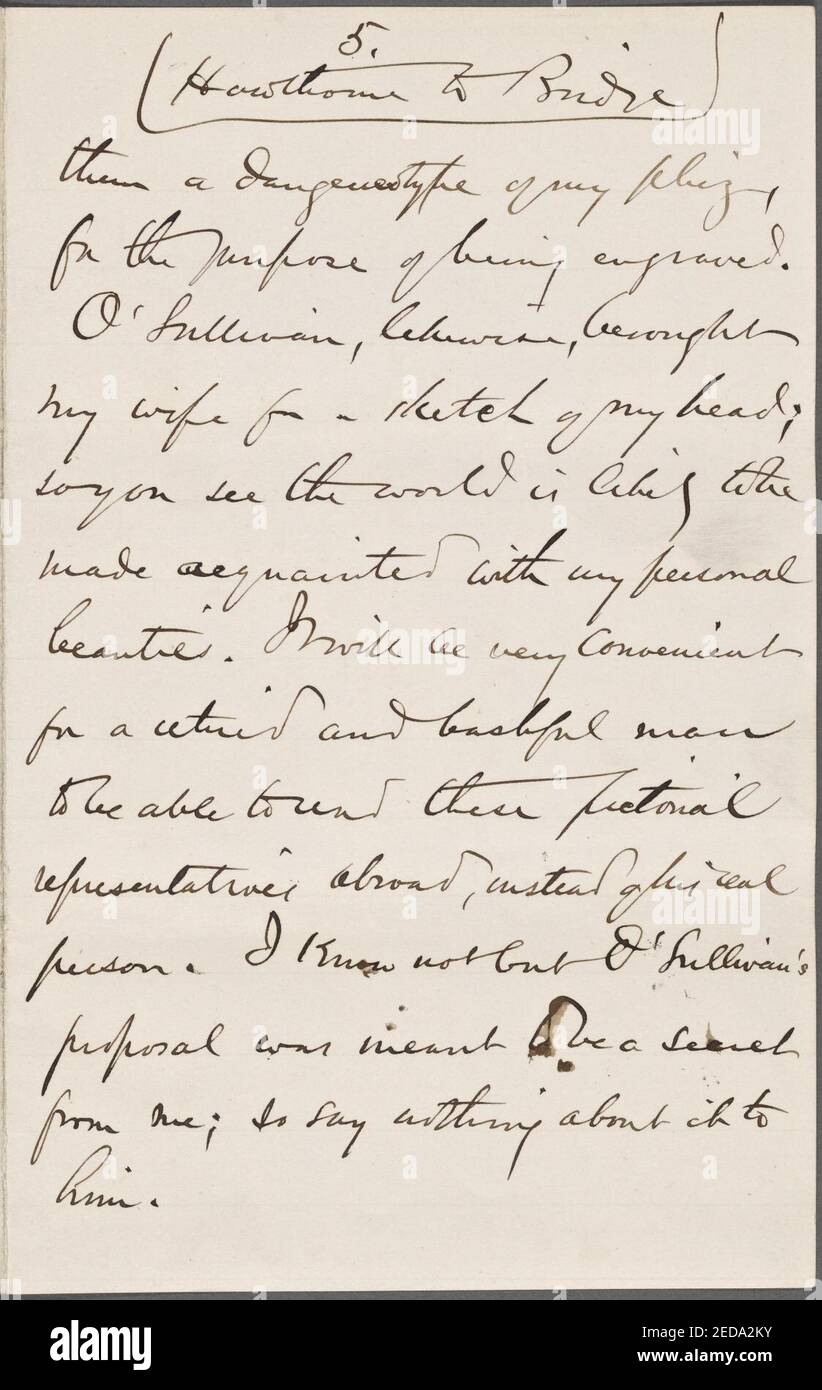 5.
(Hawthorne to Bridge)
them a daugeneotype of my phiz,
for the purpose of being engraved.
O'Sullivan, likewise, besought
my wife for a sketch of my head;
so you see the world is likely to be
made acquainted with my personal
beauties. It will be very convenient
for a retired and bashful man
to be able to send these pictorial
representatives abroad, instead of his real
person. I know not but O'Sullivan's
proposal was meant to be a secret
from me; so say nothing about it to
him.
alamy
alamy
alamy
alamy
alamy
Image ID: 2EDA2KY
www.alamy.com